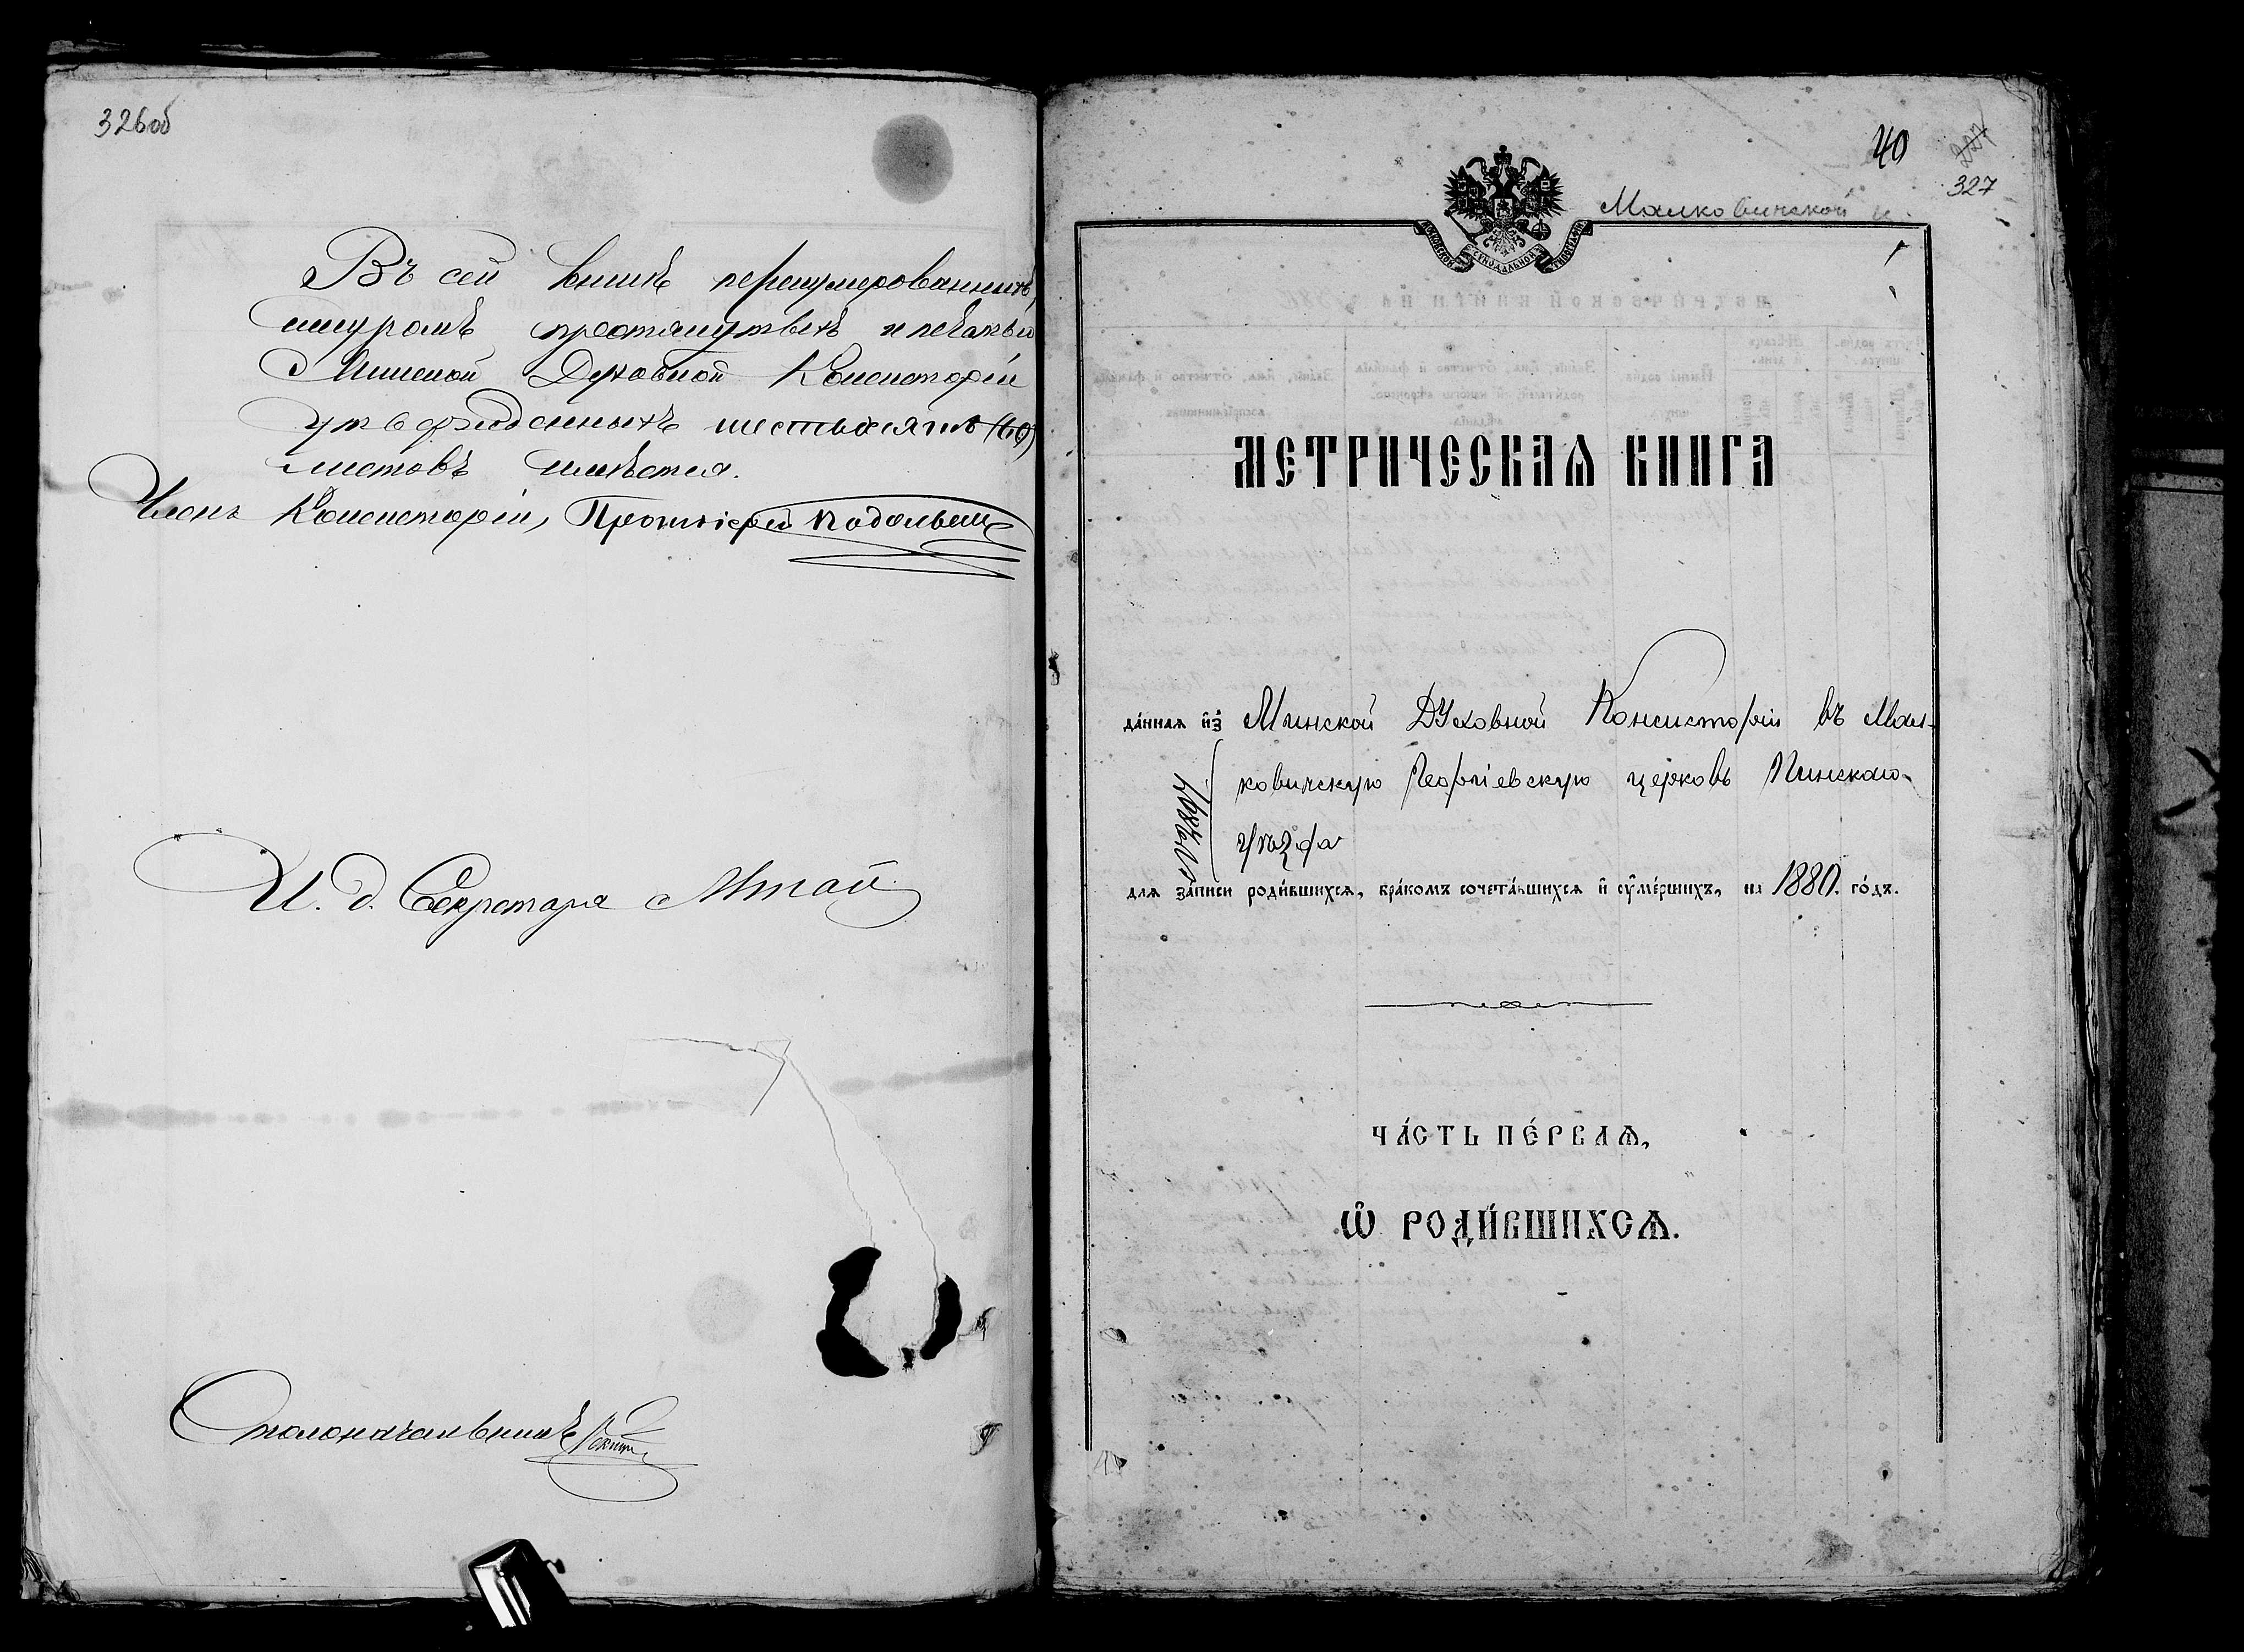 326об
Въ сей книгѣ перенумерованныхъ,
шнуромъ простянутыхъ и печатью
Минской Духовной Консисторіи
утвержденныхъ шестьдесятъ (60)
листовъ имѣется.
Членъ Консисторіи, Протоіерей
И. д. Секретаря
Столоначальникъ
40
327
327
МОСКОВСКОЙ СѴНОДАЛЬНОЙ ТИПОГРАФІИ
МЕТРИЧЕСКАЯ КНИГА
да́нная и҆з̾ Минской Духовной Консисторіи въ Мал-
ковичскую Георгіевскую церковь Пинскаго
уѣзда
для за́писи роди́вшихся, бра́комъ сочета́вшихся и҆ ᲂу҆ме́ршихъ, на 1880. го́дъ.
ЧА́СТЬ ПЕ́РВАЯ,
Ѽ РОДИ́ВШИХСЯ.